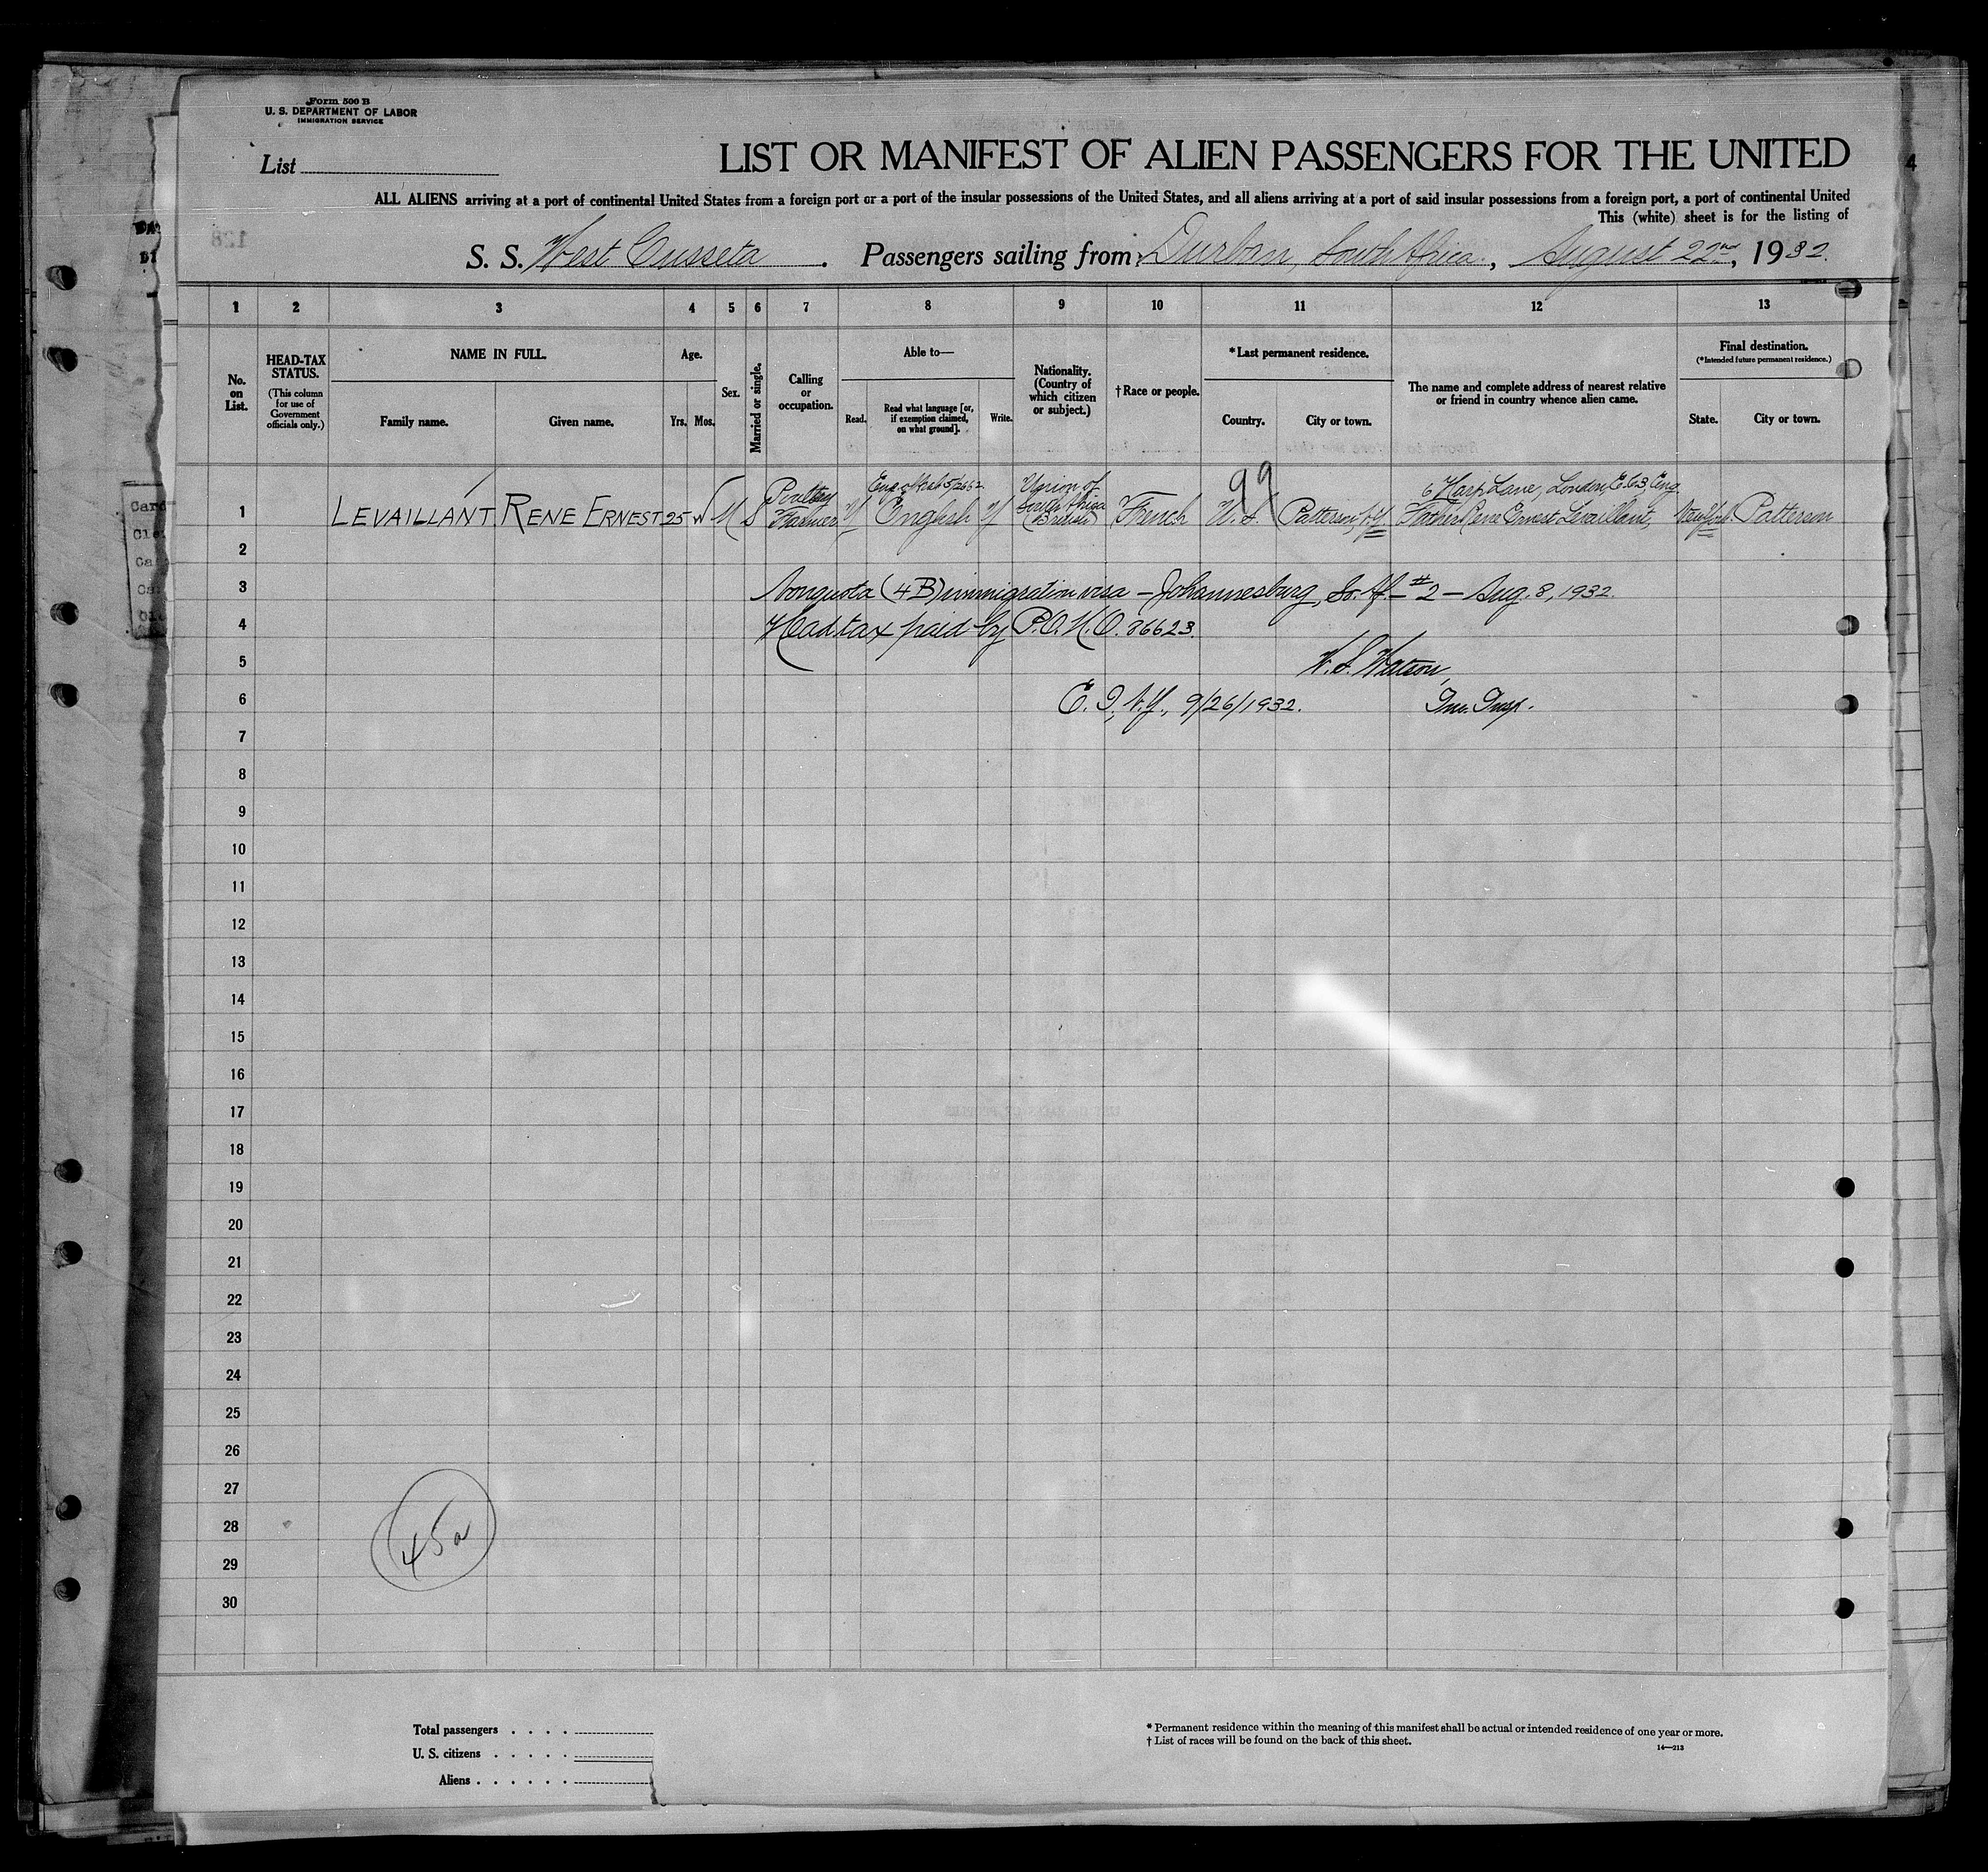 Form 500 B
U. S. DEPARTMENT OF LABOR
IMMIGRATION SERVICE
List
LIST OR MANIFEST OF ALIEN PASSENGERS FOR THE UNITED
ALL ALIENS arriving at a port of continental United States from a foreign port or a port of the insular possessions of the United States, and all aliens arriving at a port of said insular possessions from a foreign port, a port of continental United
This (white) sheet is for the listing of
S. S. West Cusseta. Passengers sailing from Durban, South Africa, August 22nd, 1932.
1 2 3 4 5 6 7 8 9 10 11 12 13
No. on List.
HEAD-TAX STATUS.
(This column for use of Government officials only.)
NAME IN FULL.
Family name.
Given name.
Age.
Yrs. Mos.
Sex.
Married or single.
Calling or occupation.
Able to—
Read.
Read what language [or, if exemption claimed, on what ground].
Write.
Nationality. (Country of which citizen or subject.)
† Race or people.
*Last permanent residence.
Country.
City or town.
The name and complete address of nearest relative or friend in country whence alien came.
Final destination.
(*Intended future permanent residence.)
State.
City or town.
99
Poultry
Union of
6 Harp Lane, London, E.C.3, Eng.
1 LEVAILLANT RENE ERNEST 25 M S Farmer Y English Y South Africa (British) French U.S. Patterson, N.Y. Father Rene Ernest Levaillant, New York. Patterson
2
3 Nonquota (4B) immigration visa – Johannesburg, So. Af. – #2 – Aug. 8, 1932.
4 Head tax paid by P.O.M.O. 86623.
5 W. S. Watson,
6 E. I., N.Y., 9/26/1932. Imm. Insp.
7
8
9
10
11
12
13
14
15
16
17
18
19
20
21
22
23
24
25
26
27
28
29
30
45a
Total passengers
U. S. citizens
Aliens
* Permanent residence within the meaning of this manifest shall be actual or intended residence of one year or more.
† List of races will be found on the back of this sheet.
14—213